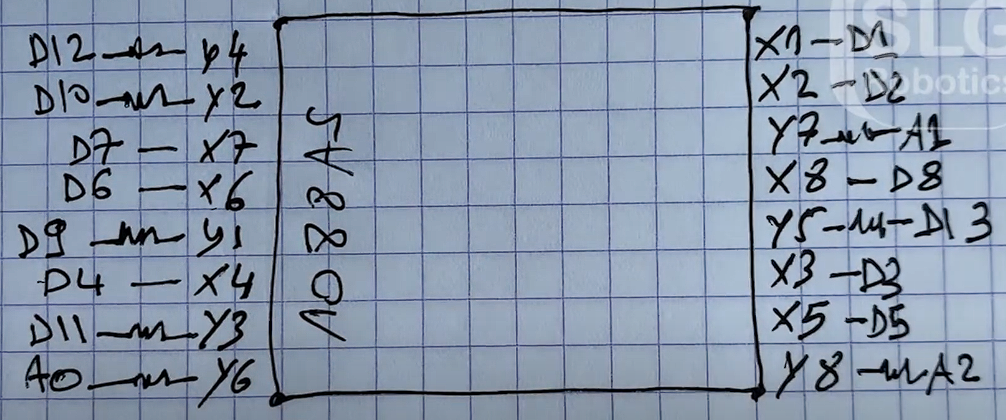 D12 Y4
D10 Y2
D7 — X7
D6 — X6
D9 Y1
D4 — X4
D11 Y3
A0 Y6
1088AS
X1 — D1
X2 — D2
Y7 A1
X8 — D8
Y5 D13
X3 — D3
X5 — D5
Y8 A2